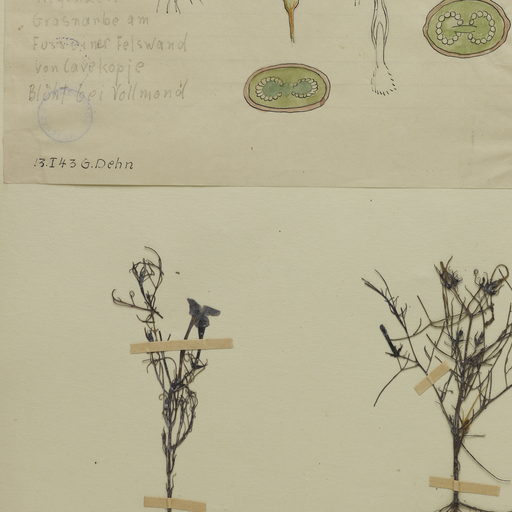 Grasnarbe am
Fuss einer Felswand
von Lavskopje
Blüht bei Vollmond
13.I43 G.Dehn